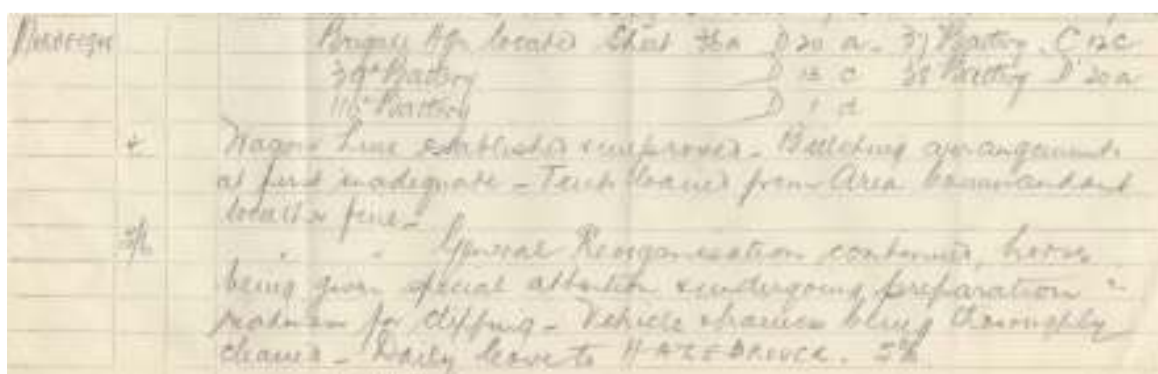 MORBECQUE Brigade Hqrs located Sheet 36a D 20 a. 37 Battery. C 12 c
39th Battery D 13 c 38 Battery D 20 a
116th Battery D 1 d
4 Wagon Line established & improved - Billeting arrangements
at first inadequate - Tents loaned from Area Commandant
Weather fine -
5th " " General Reorganisation continued, horses
being given special attention & undergoing preparation in
readiness for clipping - Vehicle & harness being thoroughly
cleaned - Daily leave to HAZEBROUCK. 5%